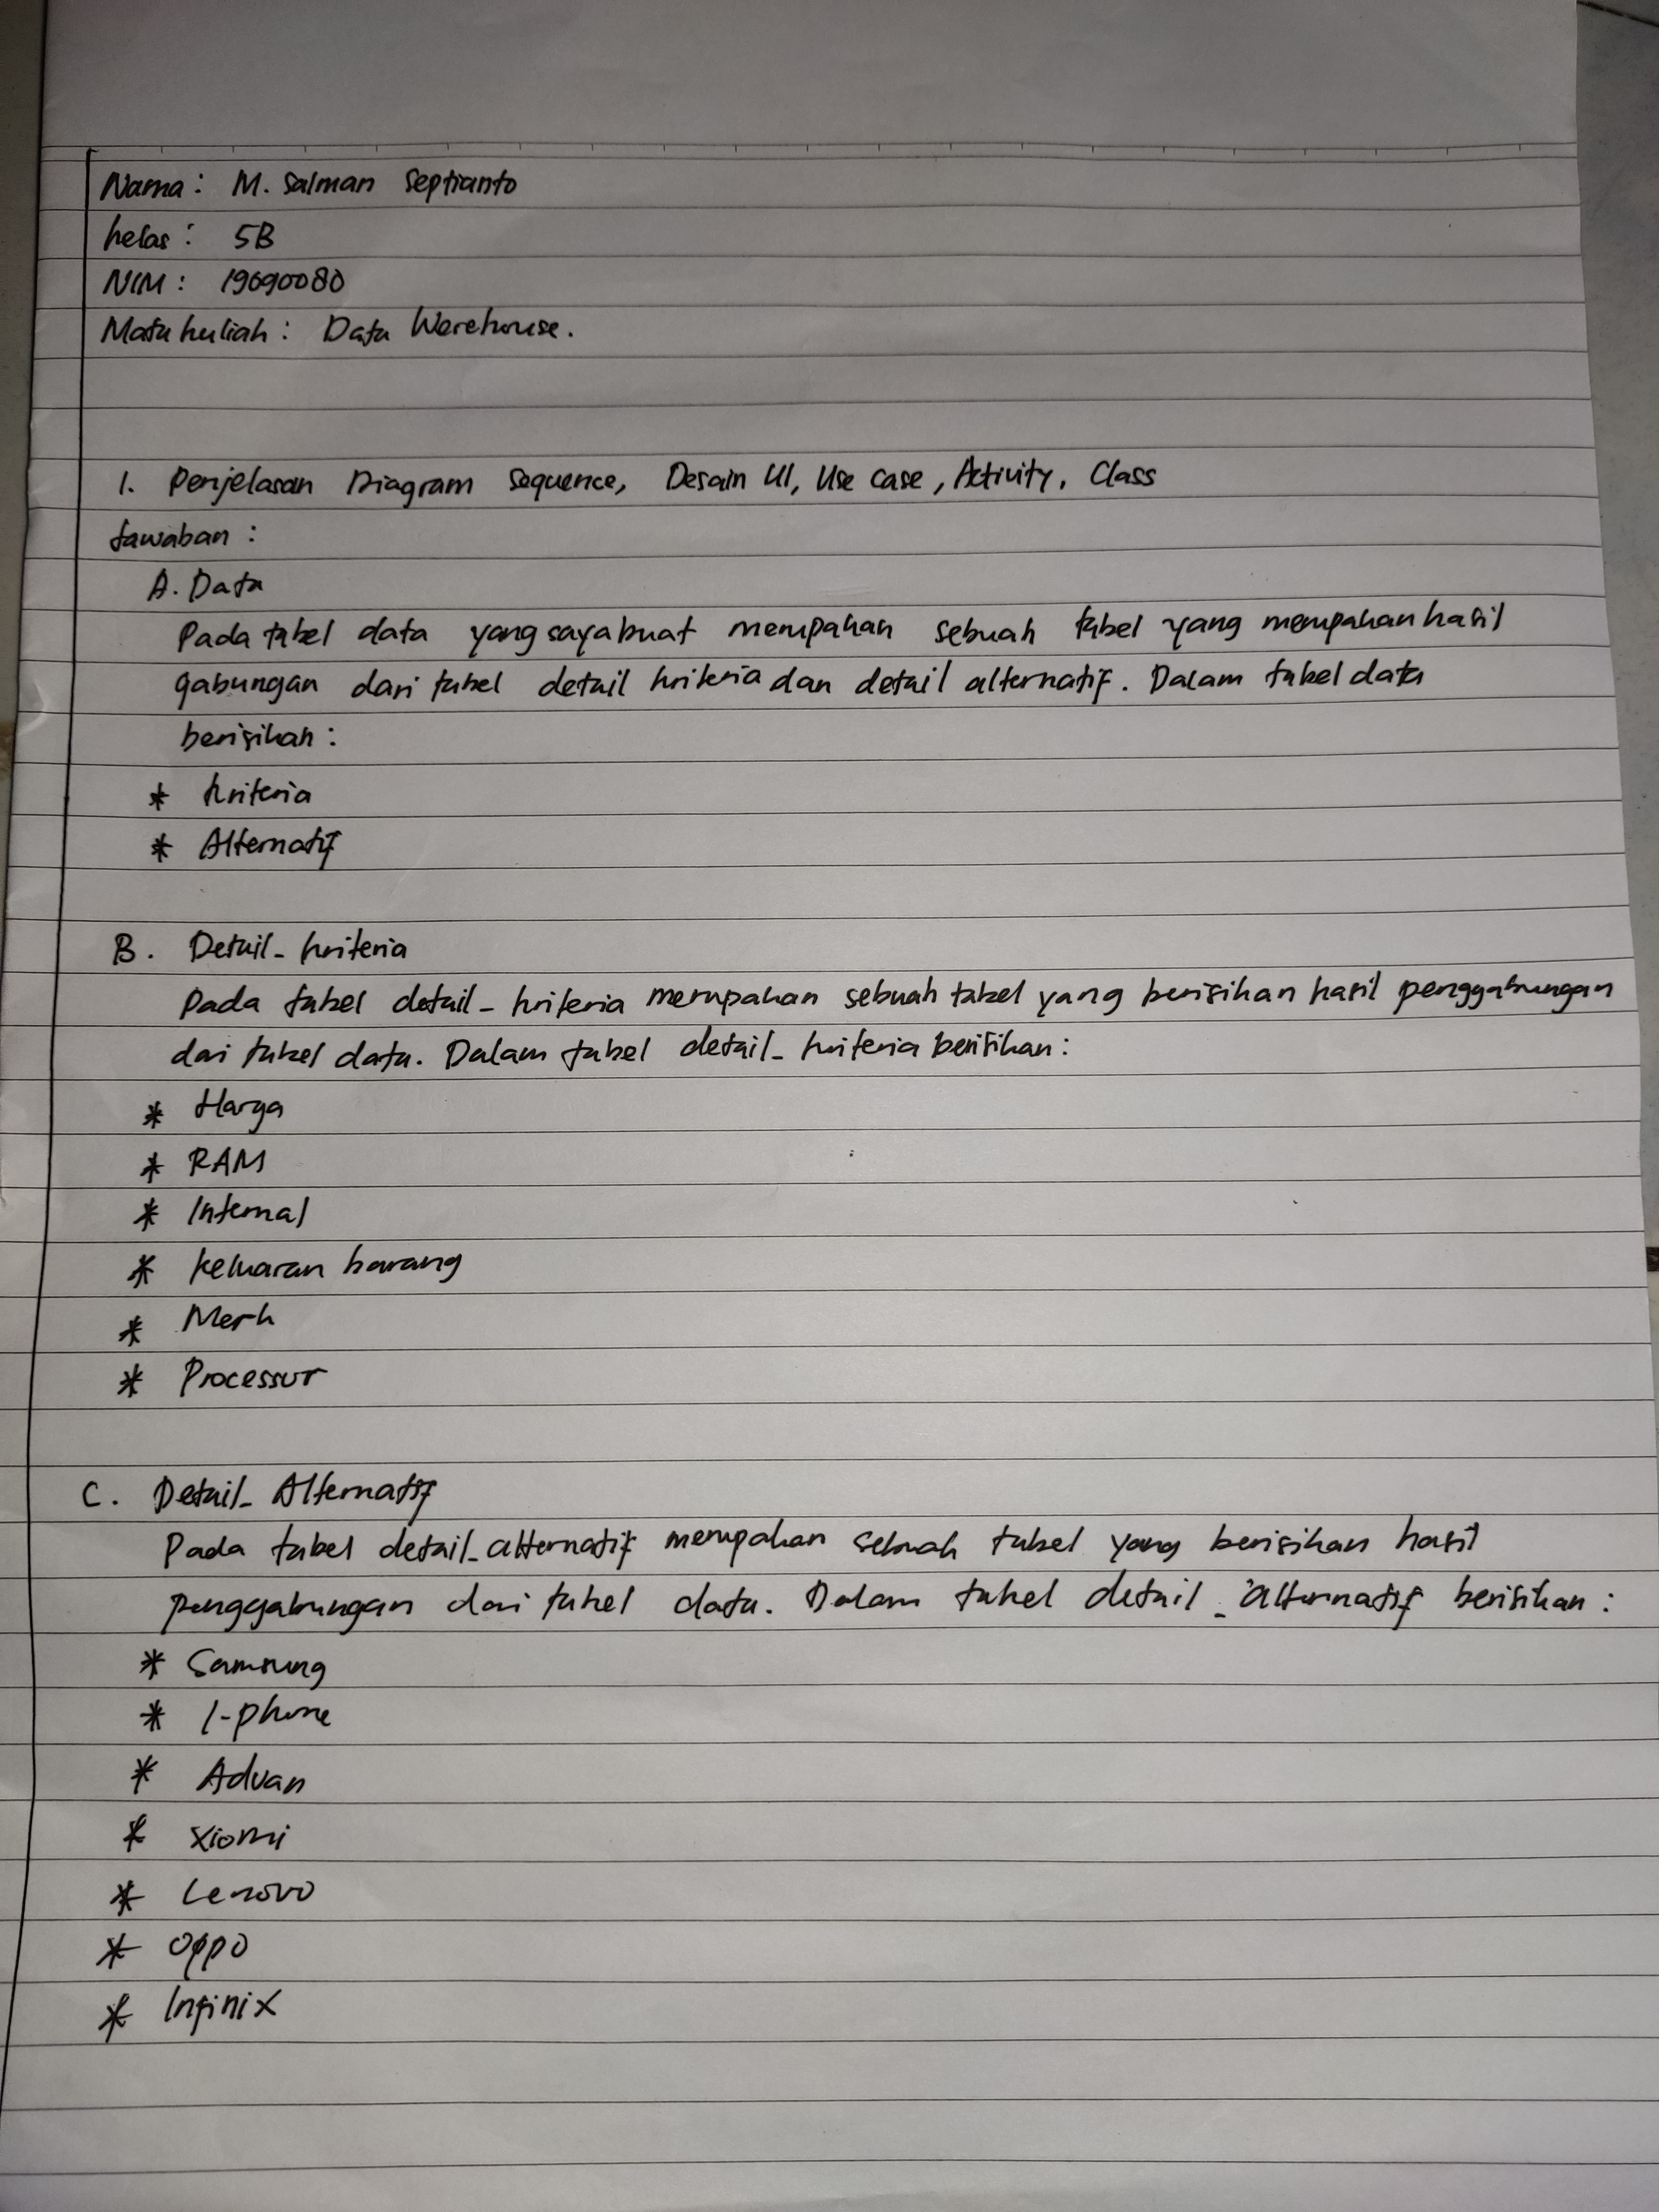 Nama : M. Salman Septianto
Kelas : 5B
NIM : 19690080
Mata kuliah : Data Werehouse.
1. Penjelasan Diagram Sequence, Desain UI, Use Case, Activity, Class
Jawaban :
A. Data
Pada tabel data yang saya buat merupakan sebuah tabel yang merupakan hasil
gabungan dari tabel detail kriteria dan detail alternatif. Dalam tabel data
berisikan :
* Kriteria
* Alternatif
B. Detail_kriteria
Pada tabel detail_kriteria merupakan sebuah tabel yang berisikan hasil penggabungan
dari tabel data. Dalam tabel detail_kriteria berisikan :
* Harga
* RAM
* Internal
* Keluaran barang
* Merk
* Processor
C. Detail_Alternatif
Pada tabel detail_alternatif merupakan sebuah tabel yang berisikan hasil
penggabungan dari tabel data. Dalam tabel detail_alternatif berisikan :
* Samsung
* I-phone
* Advan
* Xiomi
* Lenovo
* Oppo
* Infinix